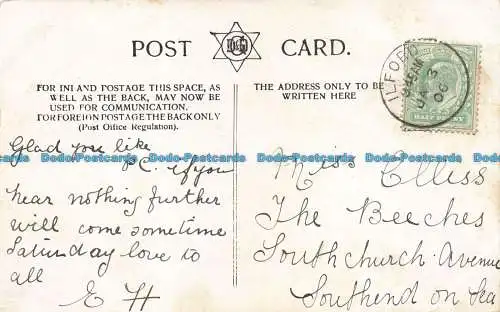 POST CARD.
FOR INLAND POSTAGE THIS SPACE, AS
WELL AS THE BACK, MAY NOW BE
USED FOR COMMUNICATION.
FOR FOREIGN POSTAGE THE BACK ONLY
(Post Office Regulation).
THE ADDRESS ONLY TO BE
WRITTEN HERE
ILFORD
JA 3
06
HALF PENNY
Glad you like
P.C. if you
hear nothing further
will come sometime
Saturday love to
all
E H
Miss Elliss
The Beeches
Southchurch Avenue
Southend on Sea
Dodo-Postcards Dodo-Postcards Dodo-Postcards Dodo-Postcards Dodo-Postcards Dodo-Postcards